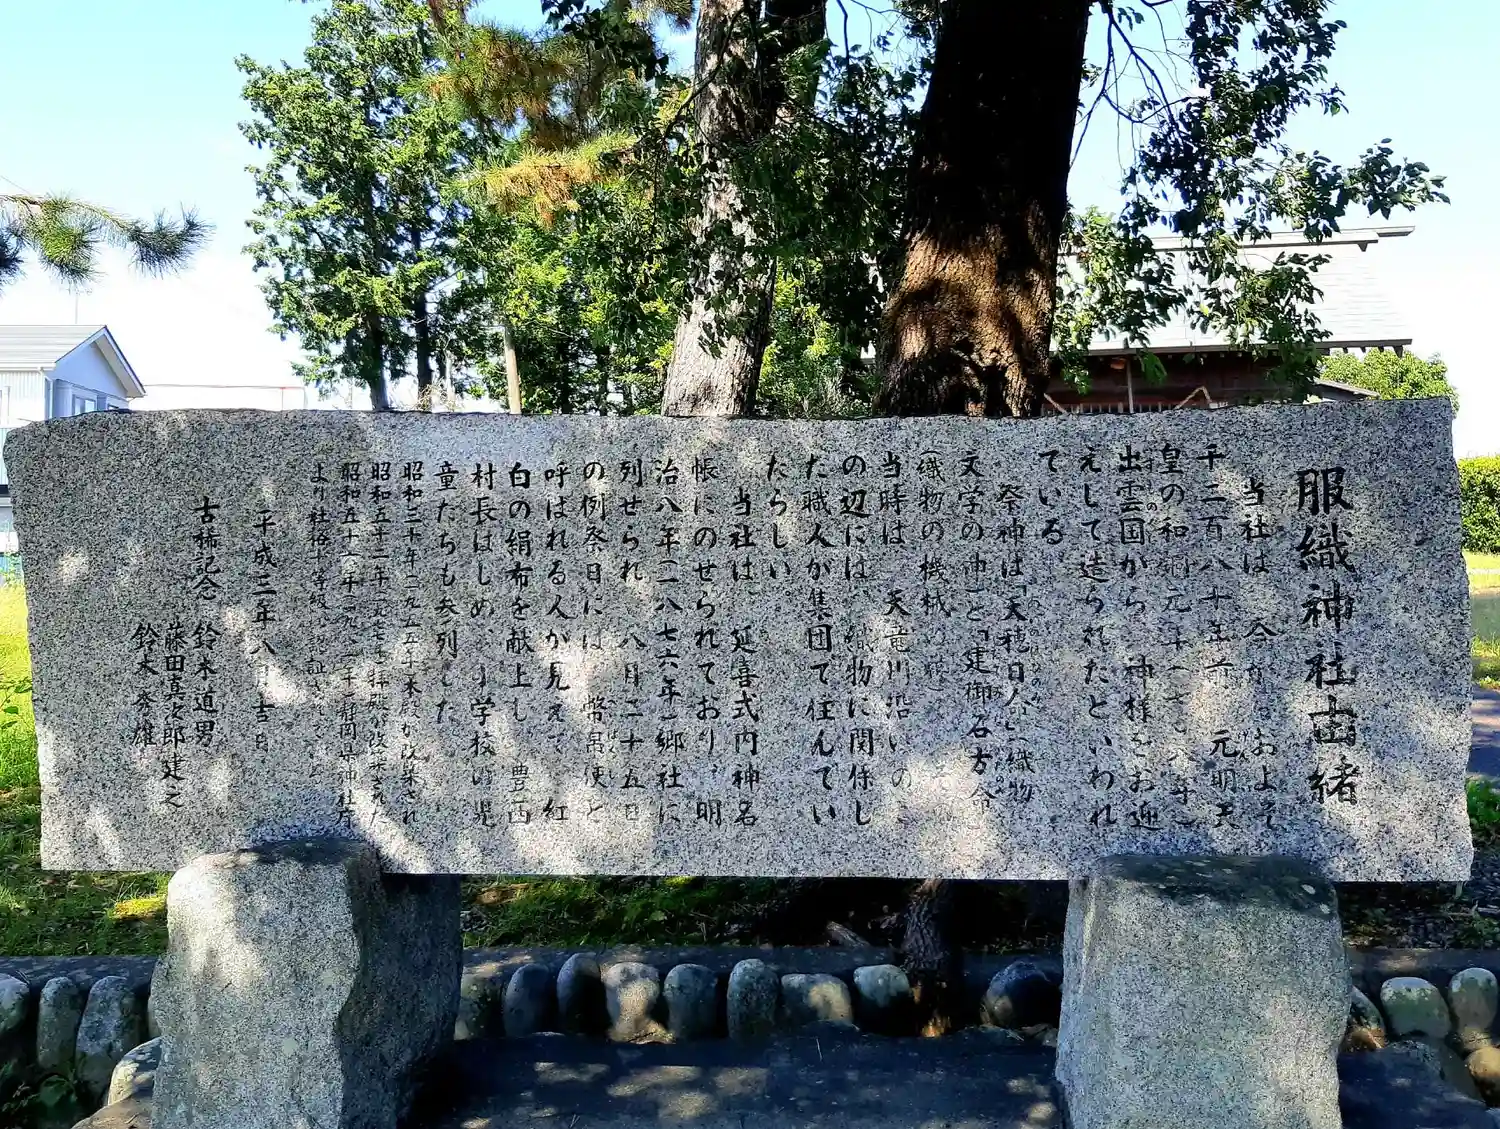 服織神社由緒
当社は、今からおよそ
千二百八十年前、元明天
皇の和銅元年(七〇八年)
出雲国から、神様をお迎
えして造られたといわれ
ている。
祭神は「天穂日人と(織物
文学の神)と「建御名方命
(織物の機械の神)
当時は、天竜川沿いのこ
の辺には、織物に関係し
た職人が集団で住んでい
たらしい。
当社は、延喜式内神名
帳にのせられており、明
治八年(一八七六年)郷社に
列せられ、八月二十五日
の例祭日には、幣帛使と
呼ばれる人が見えて、紅
白の絹布を献上し、豊西
村長はじめ、小学校の児
童たちも参列した。
昭和三十年(一九五五年)本殿が改築され
昭和五十二年(一九七七年)拝殿が改築された
昭和五十六年(一九八一年)静岡県神社庁
より社格十等級に認証された
平成三年八月吉日
古稀記念 鈴木道男
藤田真之郎 建之
鈴木秀雄